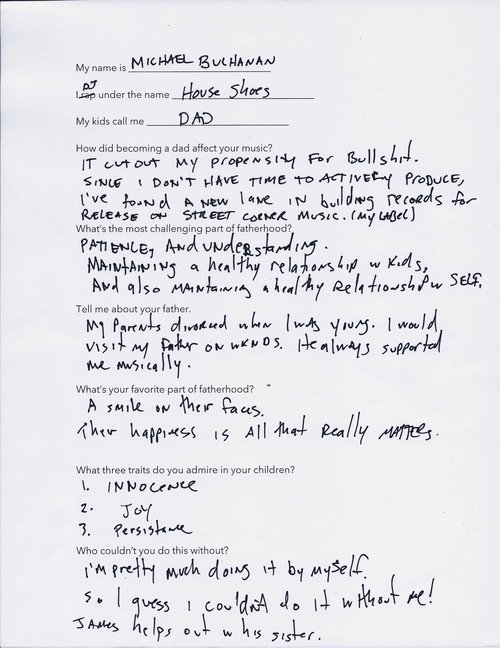 My name is MICHAEL BUCHANAN
DJ
I rap under the name House Shoes
My kids call me DAD
How did becoming a dad affect your music?
IT CUT OUT MY PROPENSITY FOR Bullshit.
SINCE I DON'T HAVE TIME TO ACTIVELY PRODUCE,
I've found A NEW lane IN building records for
RELEASE ON STREET CORNER MUSIC. (MY LABEL)
What's the most challenging part of fatherhood?
PATIENCE, AND understanding.
MAINTAINING a healthy relationship w Kids,
AND also MAINTAINING a healthy Relationship w SELF.
Tell me about your father.
My Parents divorced when I was young. I would
visit my father on wknds. He always supported
me musically.
What's your favorite part of fatherhood?
A smile on their faces.
Their happiness is All that Really MATTERS.
What three traits do you admire in your children?
1. INNOCENCE
2. Joy
3. Persistance
Who couldn't you do this without?
I'm pretty much doing it by myself.
So I guess I couldn't do it without me!
JAMES helps out w his sister.